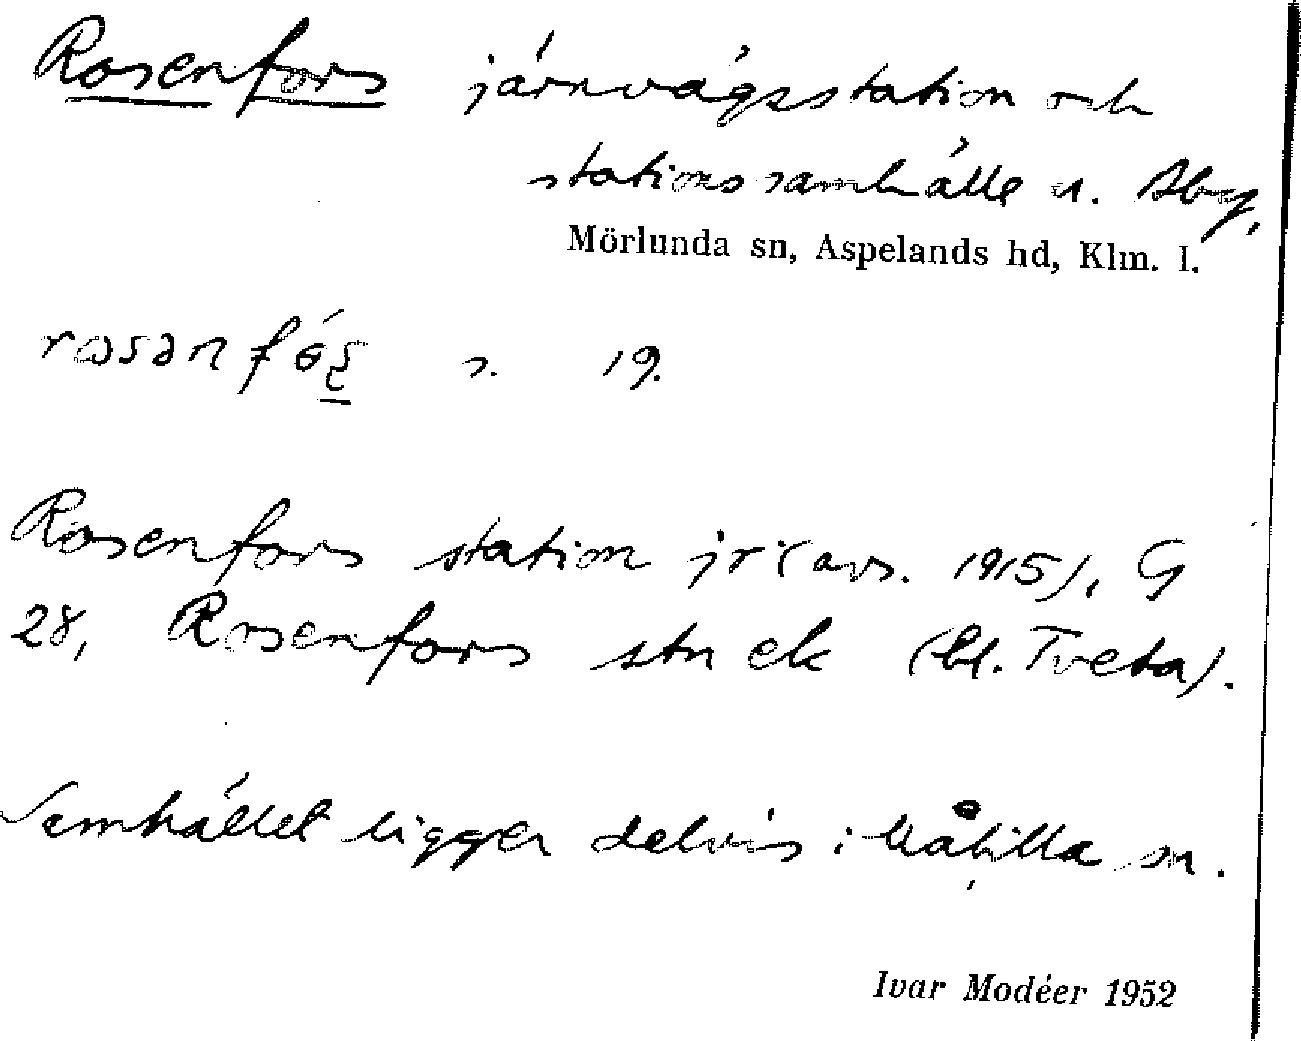 Rosenfors järnvägsstation och
stationssamhälle u. Åby,
Mörlunda sn, Aspelands hd, Klm. l.
s. 19.
Rosenfors station jr (avs. 1915), G
28, Rosenfors stn ek (bl. Tveta).
Samhället ligger delvis i Målilla sn.
Ivar Modéer 1952